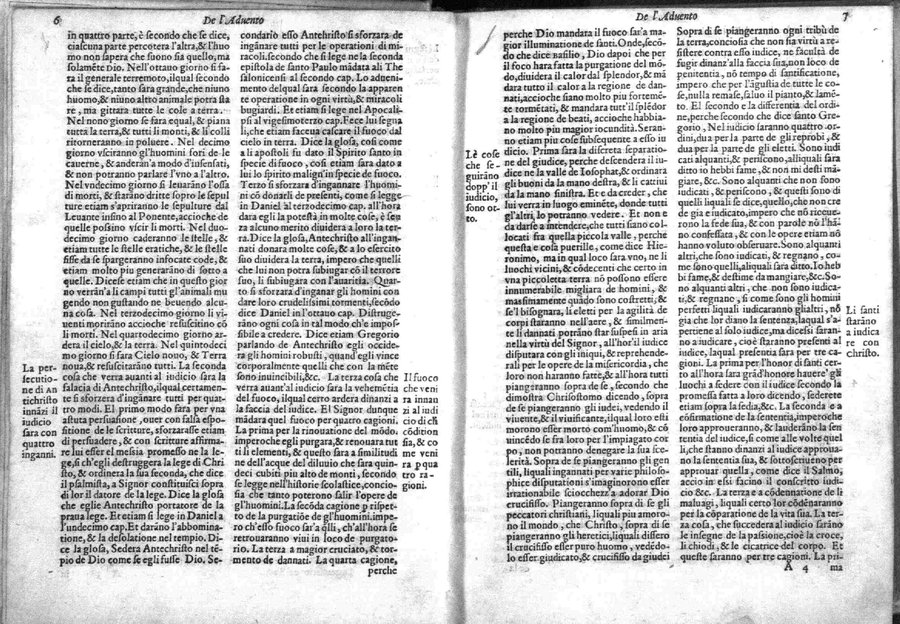 6
De l'Aduento
in quattro parte, è secondo che se dice,
ciascuna parte percotera l'altra, & l'huo
mo non sapera che fuono sia quello, ma
solamẽte Dio. Nell'ottano giorno si fa-
ra il generale terremoto, ilqual secondo
che se dice, tanto sara grande, che niuno
huomo, & niuno altro animale potra sta
re, ma gittara tutte le cole a terra.
Nel nono giorno se fara equal, & piana
tutta la terra, & tutti li monti, & li colli
ritorneranno in poluere. Nel decimo
giorno vsciranno gl'huomini fori de le
cauerne, & anderan'a modo d'insensati,
& non potranno parlare l'vno a l'altro.
Nel vndecimo giorno si leuarãno l'ossa
di morti, & starãno dritte sopro le sepul
ture etiam s'apriranno le sepulture dal
Leuante insino al Ponente, accioche de
quelle possino vscir li morti. Nel duo-
decimo giorno caderanno le stelle, &
etiam tutte le stelle eratiche, & le stelle
fisse da se spargeranno infocate code, &
etiam molto piu generarãno di sotto a
quelle. Dicese etiam che in questo gior
no verrãn'a li campi tutti gl'animali mu
gendo non gustando ne beuendo alcu-
na cosa. Nel terzodecimo giorno li vi-
uenti moritãno accioche resuscitino cõ
li morti. Nel quartodecimo giorno ar-
dera il cielo, & la terra. Nel quintodeci
mo giorno si fara Cielo nouo, & Terra
noua, & resuscitarãno tutti. La seconda
cosa che verra auanti al iudicio sara la
falacia di Antechristo, ilqual, certamen-
te si sforzera d'ingãnare tutti per quat-
tro modi. El primo modo sara per vna
astuta persuasione, ouer con falsa espo-
sitione de le scritture, sforzarasse etiam
di persuadere, & con scritture affirma-
re lui esser el messia promesso ne la le-
ge, si ch'egli destruggera la lege di Chri
sto, & ordinera la sua seconda, che dice
il psalmista, a Signor constituisci sopra
di lor il datore de la lege. Dice la glosa
che eglie Antechristo portatore de la
praua lege. Et etiam si lege in Daniel a
l'undecimo cap. Et darãno l'abbomina-
tione, & la desolatione nel tempio. Di-
ce la glosa, Sedera Antechristo nel tẽ-
pio de Dio come se egli fusse Dio. Se-
La per-
secutio-
ne di an
techristo
innãzi il
iudicio
sara con
quattro
inganni.
condario esso Antechristo si sforzara de
ingãnare tutti per le operationi di mi-
racoli, secondo che si lege ne la seconda
epistola de santo Paulo mãdata alli The
salonicensi al secondo cap. Lo adueni-
mento del qual sara secondo la apparen
te operatione in ogni virtù, & miracoli
bugiardi. Et etiam si lege nel Apocali-
psi al vigesimoterzo cap. Fece lui segna
li, che etiam faceua cascare il fuoco dal
cielo in terra. Dice la glosa, così come
a li apostoli fu dato il Spirito santo in
specie di fuoco, così etiam sara dato a
lui lo spirito malign'in specie de fuoco.
Terzo si sforzera d'ingannare l'huomi
ni cõ donarli de presenti, come si legge
in Daniel al terzodecimo cap. all'hora
dara egli la potestà in molte cose, è sen
za alcuno merito diuidera a loro la ter-
ra. Dice la glosa, Antechristo all'ingan-
nati donara molte cose, & a lo esercito
suo diuidera la terra, impero che quelli
che lui non potra subiugar cõ il terrore
suo, li subiugara con l'auaritia. Quar-
to si sforzera d'inganar gli homini con
dare loro crudelissimi tormenti, secõdo
dice Daniel in l'ottauo cap. Distrugge-
rãno ogni cosa in tal modo ch'e impos-
sibile a credere. Dice etiam Gregorio
parlando de Antechristo egli occide-
ra gli homini robusti, quand'egli vince
corporalmente quelli che con la mẽte
sono inuincibili, &c. La terza cosa che
verra auant'al iudicio sara la vehemẽtia
del fuoco, ilqual certo ardera dinanzi a
la faccia del iudice. El Signor dunque
mãdara quel fuoco per quatro cagioni.
La prima per la rinouatione del mõdo.
imperoche egli purgara, & renouara tut
ti li elementi, & questo sara a similitudi
ne dell'acque del diluuio che sara quin-
deci cubiti piu alto de monti, secondo
se legge nell'historie scolastice, concio-
sia che tanto poterono salir l'opere de
gl'huomini. La secõda cagione p rispet-
to de la purgatiõe de gl'huomini. impe-
ro ch'esso fuoco sar'à q̃lli, ch'all'hora se
retrouaranno viui in loco de purgato-
rio. La terza a magior cruciato, & tor-
mento de dannati. La quarta cagione,
perche
Il fuoco
che veni
ra innan
zi al iudi
cio di cħ
cõdition
sia, & co
me veni
ra p qua
tro ra-
gioni.
De l'Aduento
7
perche Dio mandara il fuoco sar'a ma-
gior illuminatione de santi. Onde, secõ-
do che dice Basilio, Dio dapoi che per
il foco hara fatta la purgation del mõ-
do, diuidera il calor dal splendor, & mã
dara tutto il calor a la regione de dan-
nati, accioche siano molto piu fortemẽ-
te tormẽtati, & mandara tutt'il splẽdor
a la regione de beati, accioche habbia-
no molto piu magior iocundità. Seran-
no etiam piu cose subsequente a esso iu
dicio. Prima sara la discreta separatio-
ne del giudice, perche descendera il iu-
dice ne la valle de Iosophat, & ordinara
gli buoni da la mano destra, & li cattiui
da la mano sinistra. Et e da creder, che
lui verra in luogo eminẽte, donde tutti
gl'altri, lo potranno vedere. Et non e
da darse a intendere, che tutti siano col-
locati fra quella piccola valle, perche
questa e cosa puerille, come dice Hie-
ronimo, ma in qual loco sara vno, ne li
luochi vicini, & cõdecenti che certo in
vna piccoletta terra nõ possono essere
innumerabile migliara de homini, &
massimamente quãdo sono costretti, &
se'l bisognara, li eletti per la agilità de
corpi staranno nell'aere, & similmen-
te li dannati potrãno star suspesi in aria
nella virtù del Signor, all'hor'il iudice
disputara con gli iniqui, & reprehende-
rali per le opere de la misericordia, che
loro non haranno fatte, & all'hora tutti
piangeranno sopra de se, secondo che
dimostra Chrisostomo dicendo, sopra
de se piangeranno gli iudei, vedendo il
viuente, & il viuificante, ilqual loro esti
morono esser morto com'huomo, & cõ
uincẽdo se fra loro per l'impiagato cor
po, non potranno denegare la sua sce-
lerità. Sopra de se piangeranno gli gen
tili, liquali ingannati per varie philoso-
phice disputationi s'imaginorono esser
irrationabile sciocchez'a adorar Dio
crucifisso. Piangeranno sopra di se gli
peccatori christiani, liquali piu amoro-
no il mondo, che Christo, sopra di se
piangeranno gli heretici, liquali dissero
il crucifisso esser puro huomo, vedẽdo-
lo esser giudicato, & crucifisso da giudei
Lè cose
che se-
guirãno
dopp'il
iudicio,
sono ot-
to.
Sopra di se piangeranno ogni tribù de
la terra, conciosia che non sia virtù a re-
sistere contra esso iudice, ne facultà de
fugir dinanz'alla faccia sua, non loco de
penitentia, nõ tempo di santificatione,
impero che per l'ãgustia de tutte le co-
se, nulla remase, saluo il pianto, & lamẽ-
to. El secondo e la differentia del ordi-
ne, perche secondo che dice santo Gre-
gorio, Nel iudicio saranno quattro or-
dini, dua per la parte de gli reprobi, &
dua per la parte de gli eletti. Sono iudi
cati alquanti, & periscono, alliquali sara
ditto io hebbi fame, & non mi desti mã-
giare, &c. Sono alquanti che non sono
iudicati, & periscono, & questi sono di
quelli liquali se dice, quello, che non cre
de gia e iudicato, impero che nõ riceue-
rono la fede sua, & con parole nõ l'hã-
no confessata, & con le opere etiam nõ
hanno voluto obseruare. Sono alquanti
altri, che sono iudicati, & regnano, co-
me sono quelli, aliquali sara ditto. Io heb
bi fame, & destime da mangiare, &c. So-
no alquanti altri, che non sono iudica-
ti, & regnano, si come sono gli homini
perfetti liquali iudicaranno glialtri, nõ
gia che lor diano la sentenza, laqual s'a-
pertiene al solo iudice, ma dicesi saran-
no a iudicare, cioè staranno presenti al
iudice, laqual presentia sara per tre ca-
gioni. La prima per l'honor di santi cer-
to all'hora sara grãd'honore hauere gl'
luochi a sedere con il iudice secondo la
promessa fatta a loro dicendo, sederete
etiam sopra la sedia, &c. La seconda e a
cõfirmatione de la sentenza, imperoche
loro approueranno, & laudarãno la sen
tentia del iudice, si come alle volte quel
li, che stanno dinanzi al iudice approua-
no la sententia sua, & sottoscriueno per
approuar quella, come dice il Salmo,
accio in essi facino il conscritto iudi-
cio &c. La terza e a cõdennatione de li
maluagi, liquali certo lor cõdẽnaranno
per la cõparatione de la vita sua. La ter-
za cosa, che succedera al iudicio sarãno
le insegne de la passione, cioè la croce,
li chiodi, & le cicatrice del corpo. Et
queste saranno per tre cagioni. La pri-
A 4 ma
Li santi
starãno
a iudica
re con
christo.